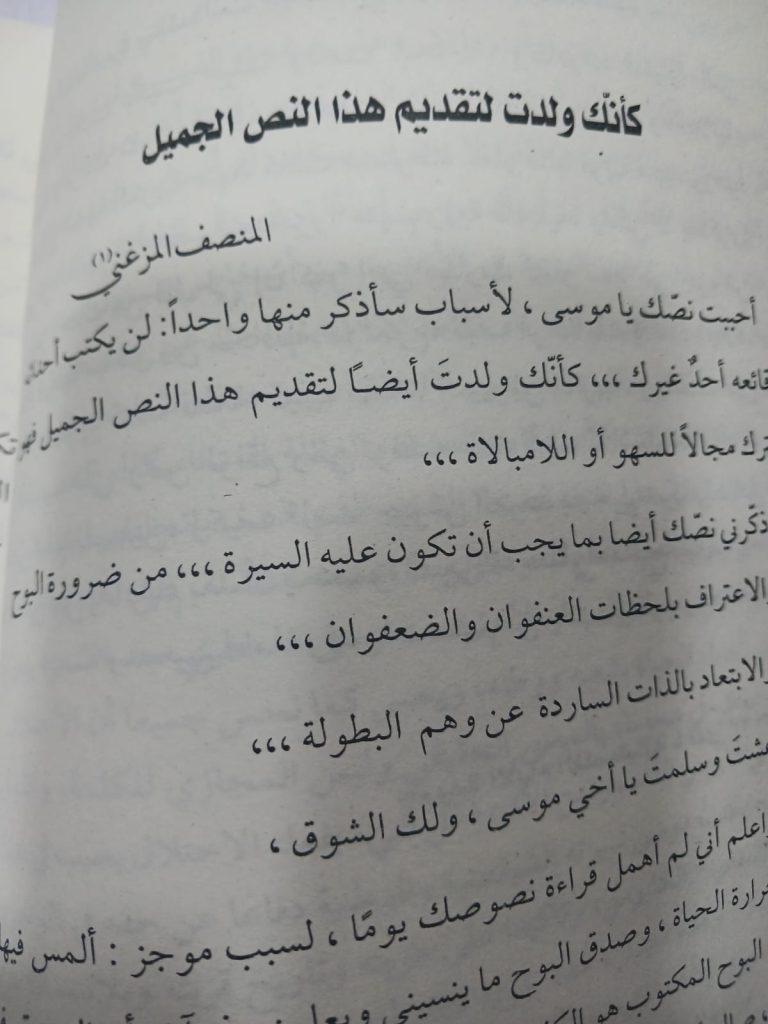 كأنّك ولدت لتقديم هذا النص الجميل
المنصف المزغني (١)
أحببت نصّك يا موسى ، لأسباب سأذكر منها واحداً: لن يكتب
أحدٌ غيرك ،،، كأنّك ولدتَ أيضاً لتقديم هذا النص الجميل فهو
مجالاً للسهو أو اللامبالاة ،،،
ذكّرني نصّك أيضا بما يجب أن تكون عليه السيرة ،،، من ضرورة البوح
والاعتراف بلحظات العنفوان والضعفوان ،،،
والابتعاد بالذات الساردة عن وهم البطولة ،،،
عشتَ وسلمتَ يا أخي موسى ، ولك الشوق ،
واعلم أني لم أهمل قراءة نصوصك يومًا ، لسبب موجز : ألمس فيها
حرارة الحياة ، وصدق البوح ما ينسيني
البوح المكتوب هو